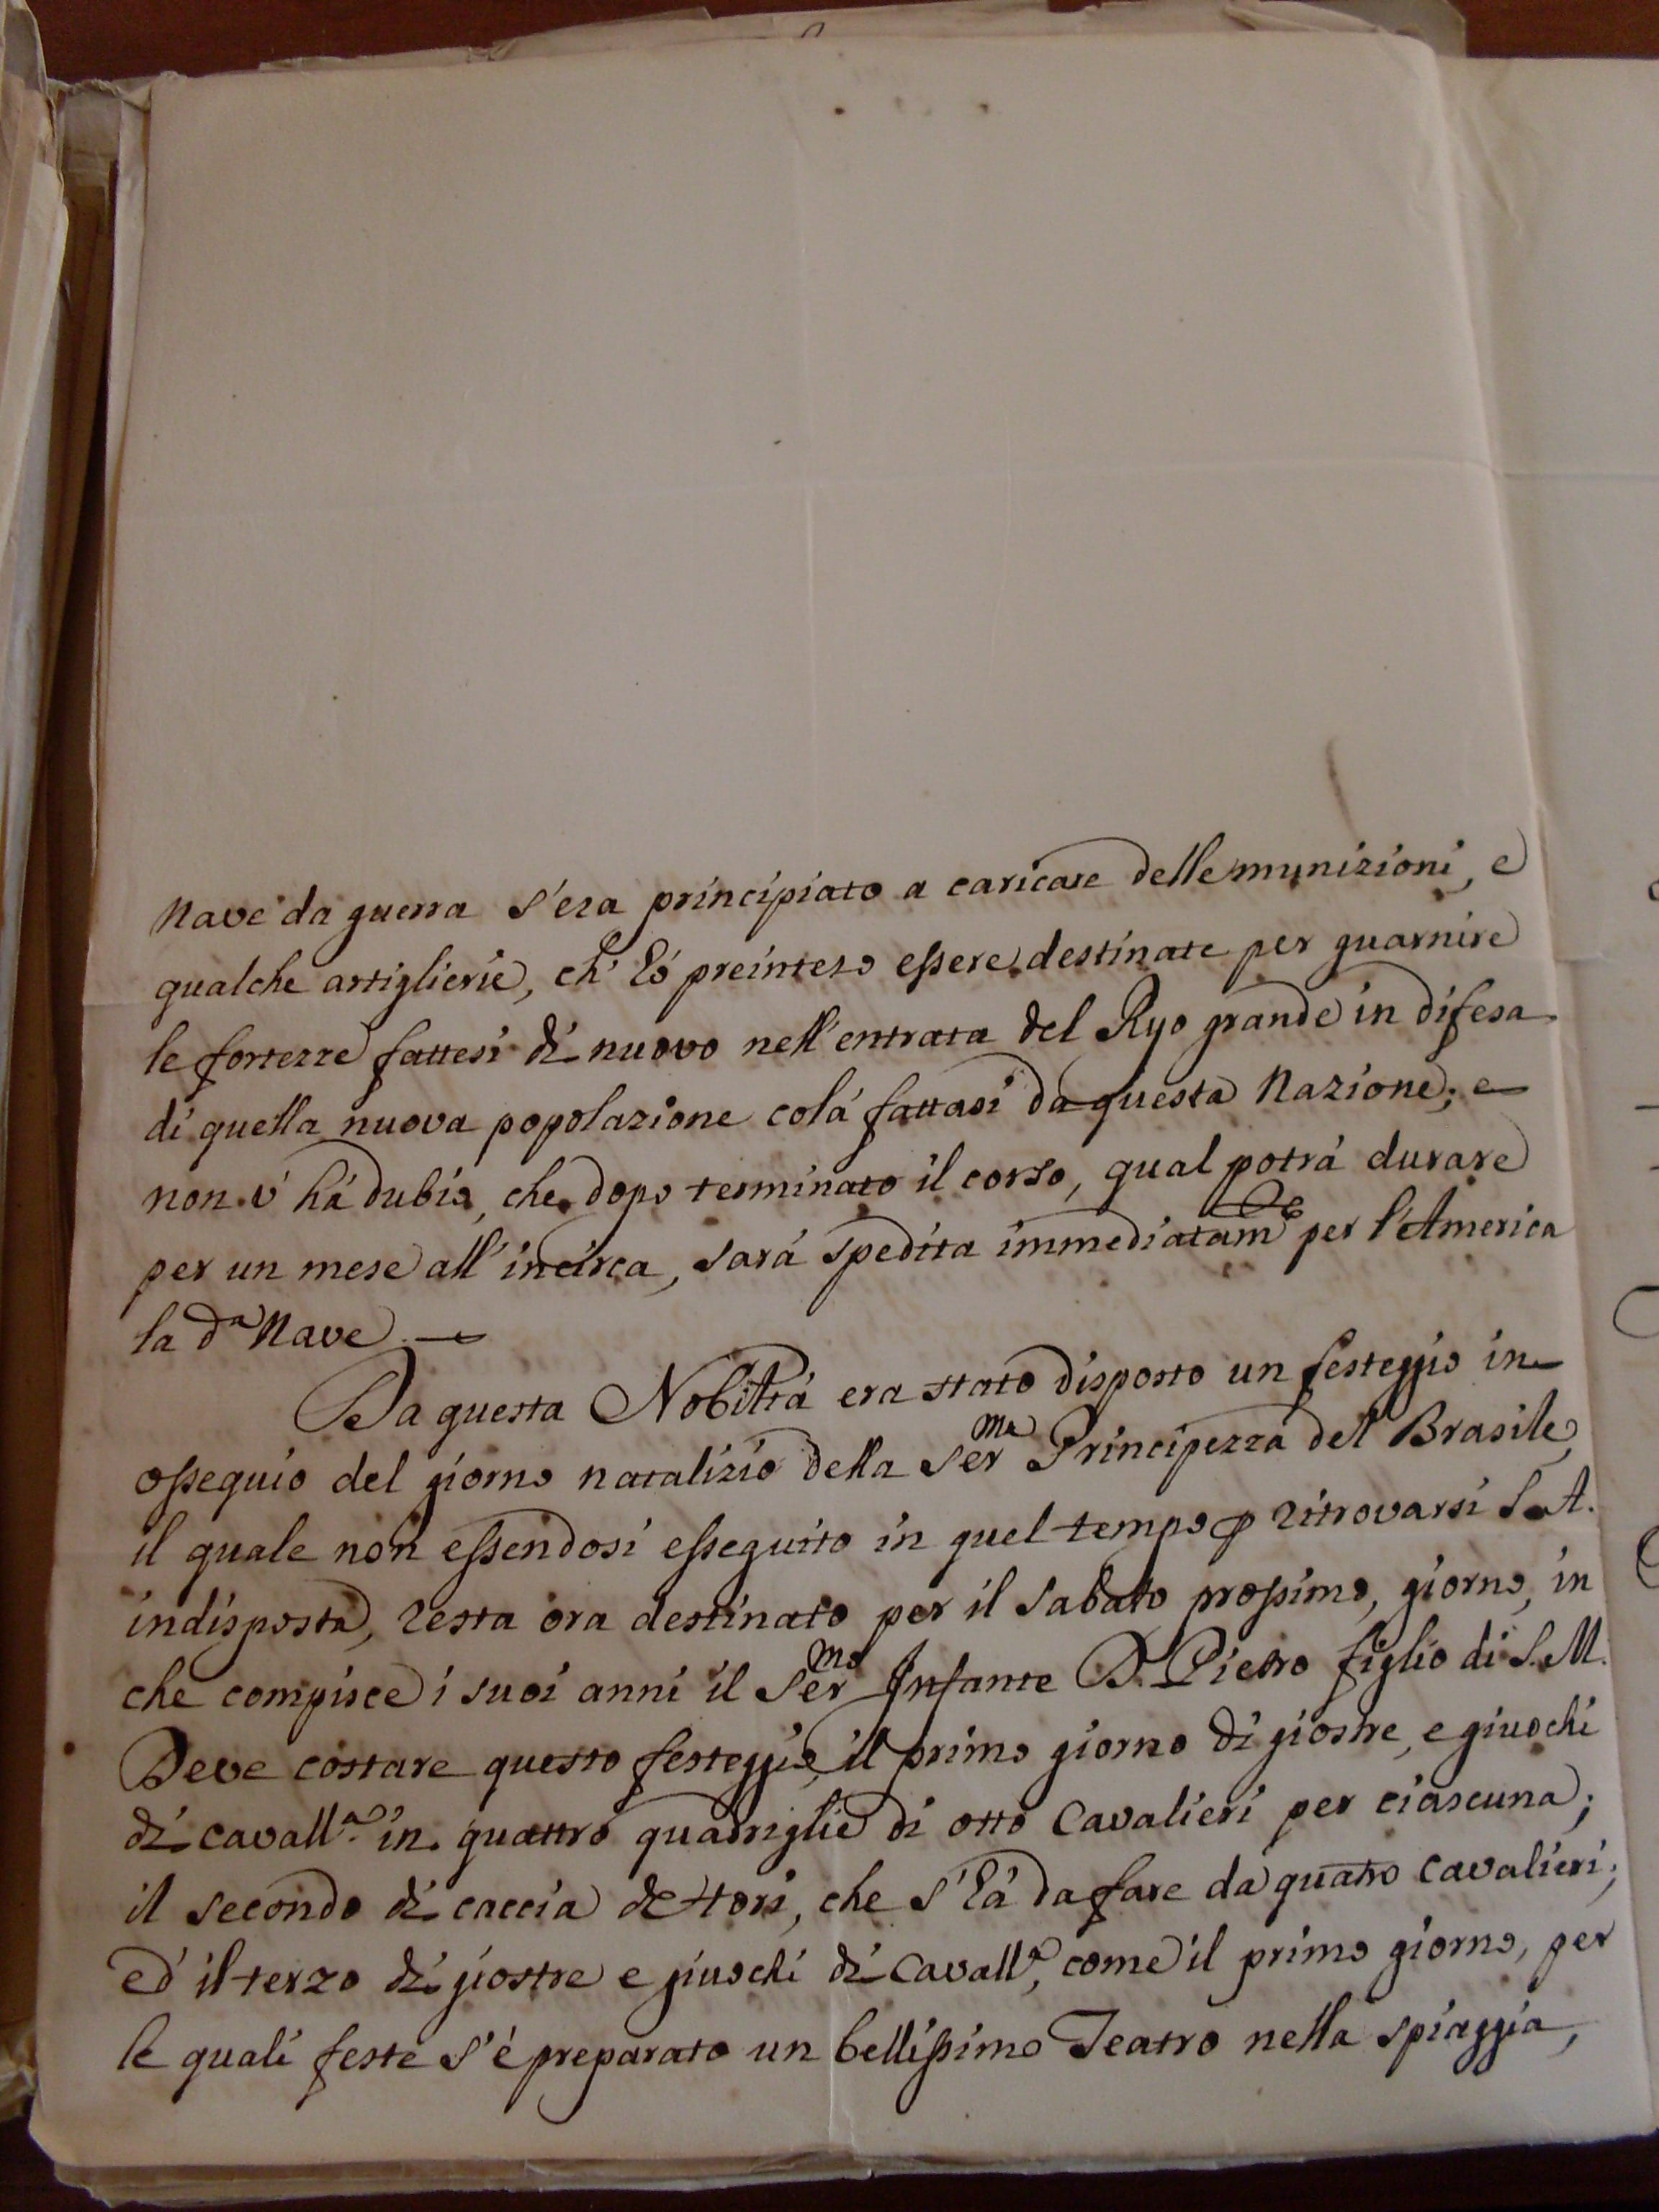 Nave da guerra s'era principiato a caricare delle munizioni, e
qualche artiglierie, ch' hó preinteso essere destinate per guarnire
le fortezze fattesi di nuovo nell'entrata del Ryo grande in difesa
di quella nuova popolazione colá fattasi da questa Nazione; e
non v' há dubio, che dopo terminato il corso, qual potrá durare
per un mese all'incirca, sará spedita immediatam.te per l'America
la d.a Nave.
Da questa Nobiltá era stato disposto un festeggio in
ossequio del giorno natalizio della Ser.ma Principezza del Brasile,
il quale non essendosi esseguito in quel tempo p ritrovarsi S. A.
indisposta, resta ora destinato per il Sabato prossimo, giorno, in
che compisce i suoi anni il Ser.mo Infante D. Pietro figlio di S. M.
Deve costare questo festeggio, il primo giorno di giostre, e giuochi
di cavall.a in quattro quadriglie di otto Cavalieri per ciascuna;
il secondo di caccia de tori, che s' há da fare da quatro Cavalieri;
ed il terzo di giostre e giuochi di Cavall.a, come il primo giorno, per
le quali feste s' é preparato un bellissimo Teatro nella spiaggia,